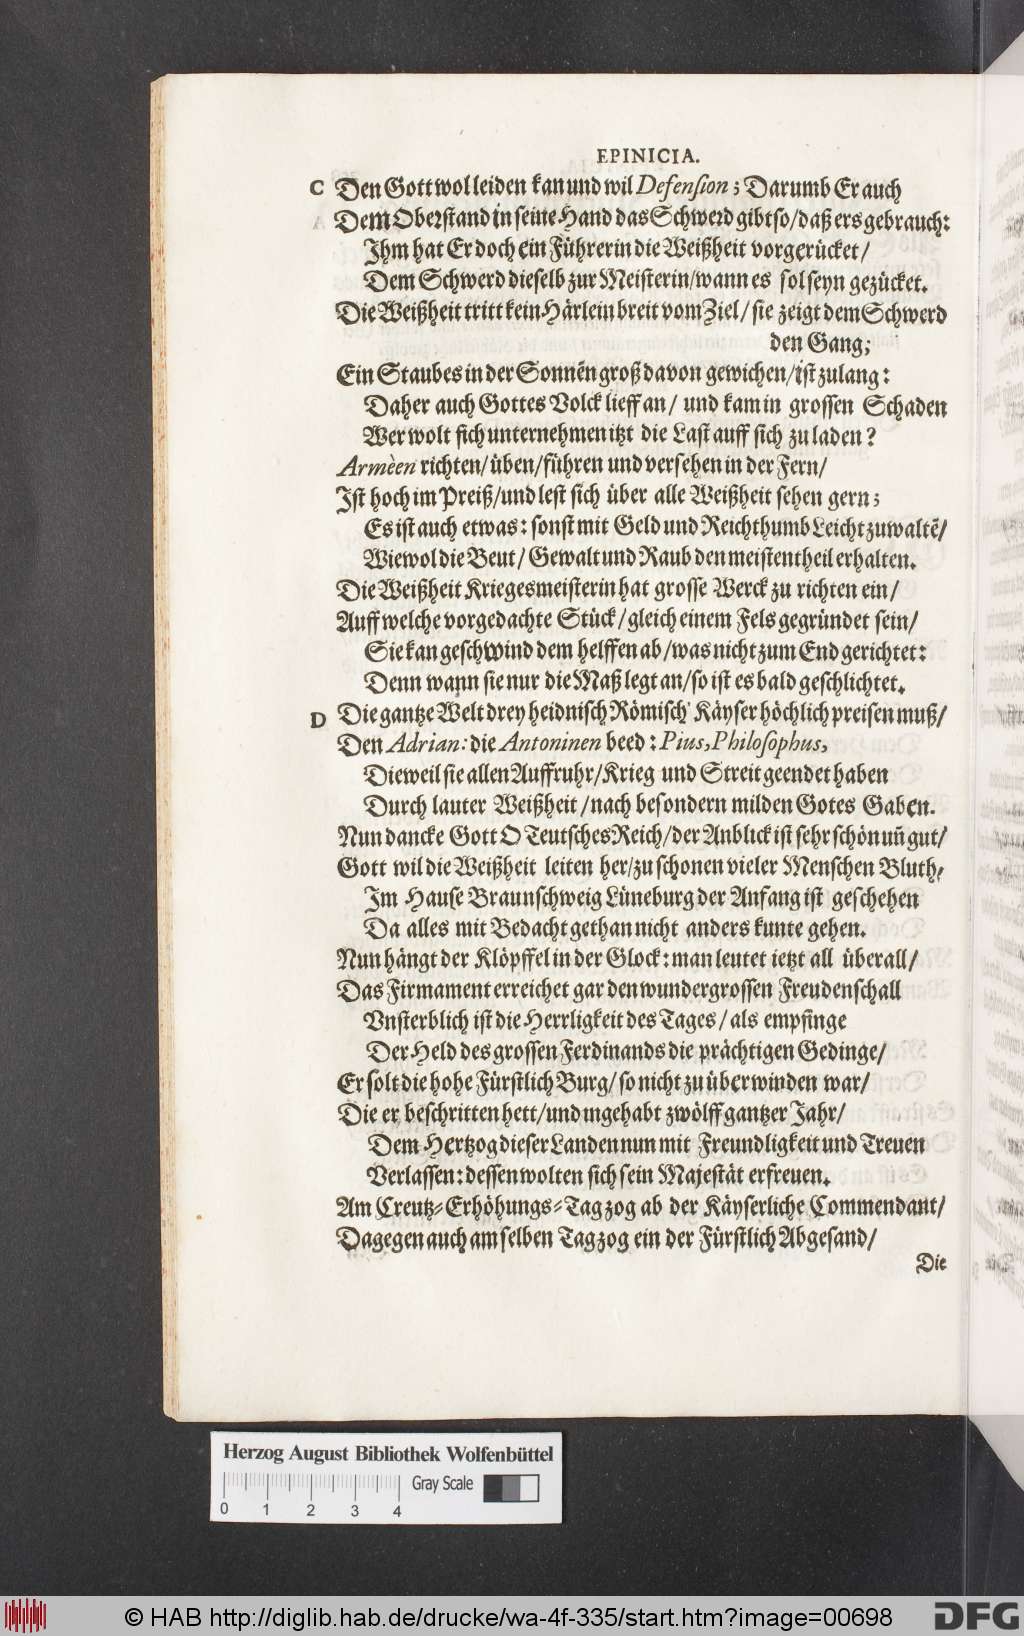 EPINICIA.
C Den Gott wol leiden kan und wil Defension; Darumb Er auch
Dem Oberstand in seine Hand das Schwerd gibt so/ daß ers gebrauch:
Ihm hat Er doch ein Führerin die Weißheit vorgerücket/
Dem Schwerd dieselb zur Meisterin/ wann es sol seyn gezücket.
Die Weißheit tritt kein Härlein breit vom Ziel/ sie zeigt dem Schwerd
den Gang;
Ein Staubes in der Sonnēn groß davon gewichen/ ist zulang:
Daher auch Gottes Volck lieff an/ und kam in grossen Schaden
Wer wolt sich unternehmen itzt die Last auff sich zu laden?
Armèen richten/ üben/ führen und versehen in der Fern/
Ist hoch im Preiß/ und lest sich über alle Weißheit sehen gern;
Es ist auch etwas: sonst mit Geld und Reichthumb Leicht zuwaltē/
Wiewol die Beut/ Gewalt und Raub den meistentheil erhalten.
Die Weißheit Kriegesmeisterin hat grosse Werck zu richten ein/
Auff welche vorgedachte Stück/ gleich einem Fels gegründet sein/
Sie kan geschwind dem helffen ab/ was nicht zum End gerichtet:
Denn wann sie nur die Maß legt an/ so ist es bald geschlichtet.
D Die gantze Welt drey heidnisch Römisch Käyser höchlich preisen muß/
Den Adrian: die Antoninen beed: Pius, Philosophus,
Dieweil sie allen Auffruhr/ Krieg und Streit geendet haben
Durch lauter Weißheit/ nach besondern milden Gotes Gaben.
Nun dancke Gott O Teutsches Reich/ der Anblick ist sehr schön uñ gut/
Gott wil die Weißheit leiten her/ zu schonen vieler Menschen Bluth/
Im Hause Braunschweig Lüneburg der Anfang ist geschehen
Da alles mit Bedacht gethan nicht anders kunte gehen.
Nun hängt der Klöpffel in der Glock: man leutet ietzt all überall/
Das Firmament erreichet gar den wundergrossen Freudenschall
Vnsterblich ist die Herrligkeit des Tages/ als empfinge
Der Held des grossen Ferdinands die prächtigen Gedinge/
Er solt die hohe Fürstlich Burg/ so nicht zu überwinden war/
Die er beschritten hett/ und ingehabt zwölff gantzer Jahr/
Dem Hertzog dieser Landen nun mit Freundligkeit und Treuen
Verlassen: dessen wolten sich sein Majestät erfreuen.
Am Creutz-Erhöhungs-Tag zog ab der Käyserliche Commendant/
Dagegen auch am selben Tag zog ein der Fürstlich Abgesand/
Die
Herzog August Bibliothek Wolfenbüttel
Gray Scale
0 1 2 3 4
© HAB http://diglib.hab.de/drucke/wa-4f-335/start.htm?image=00698
DFG